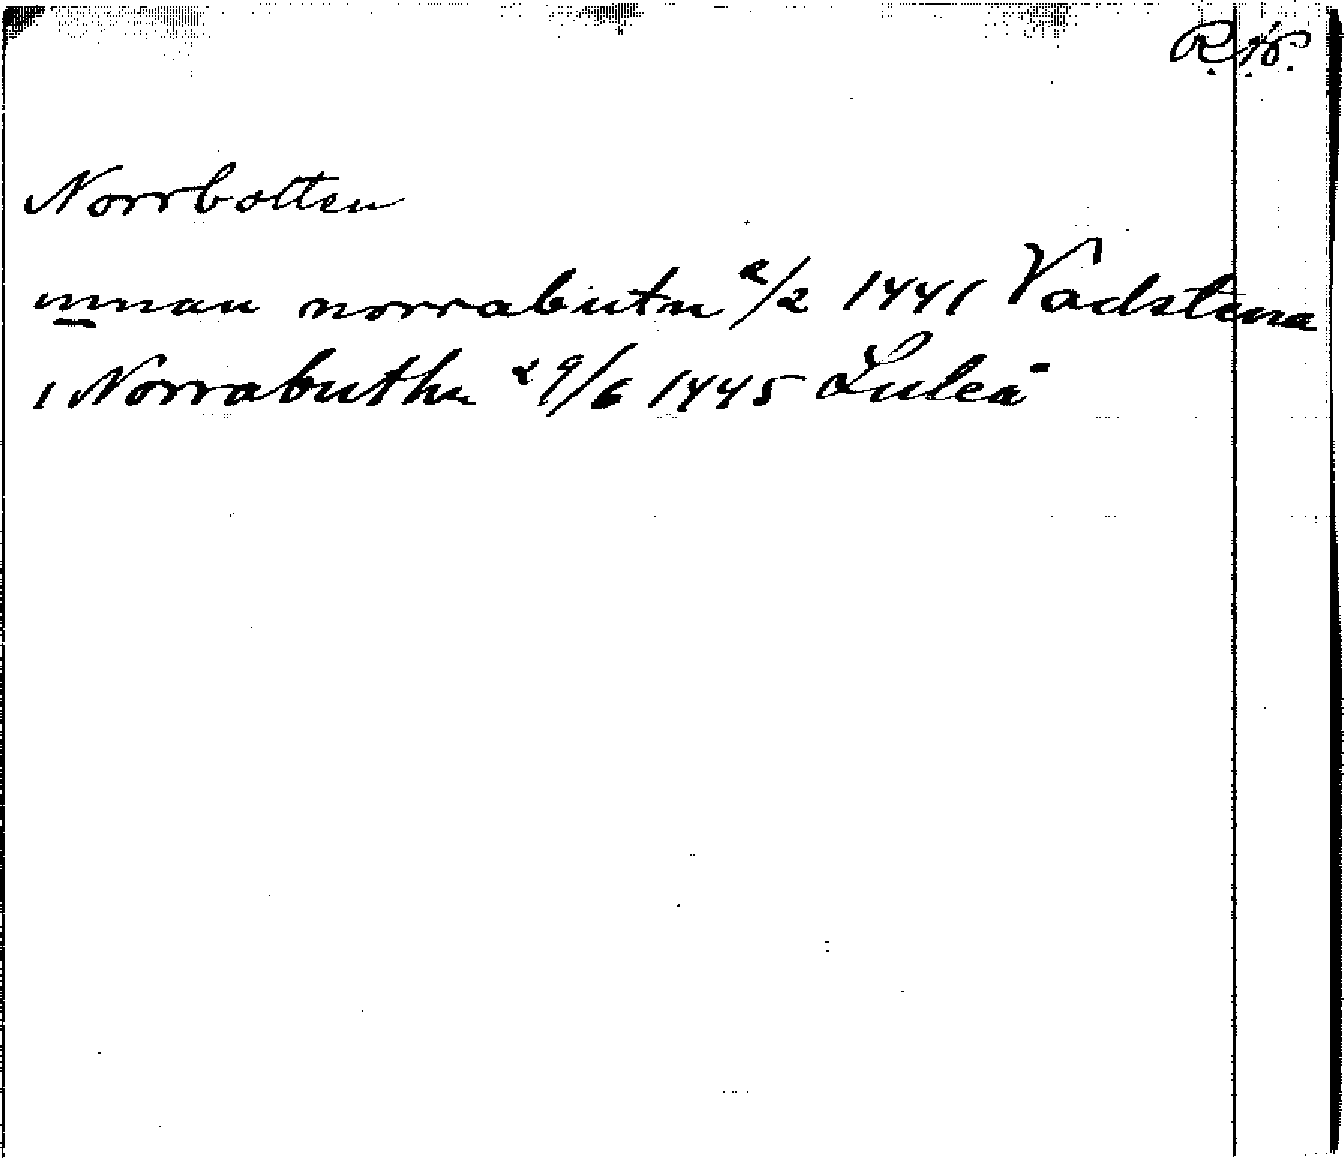 R.A.P.
Norrbotten
innan norrabutn 2/2 1441 Vadstena
i Norrabuthn 29/6 1445 Luleå